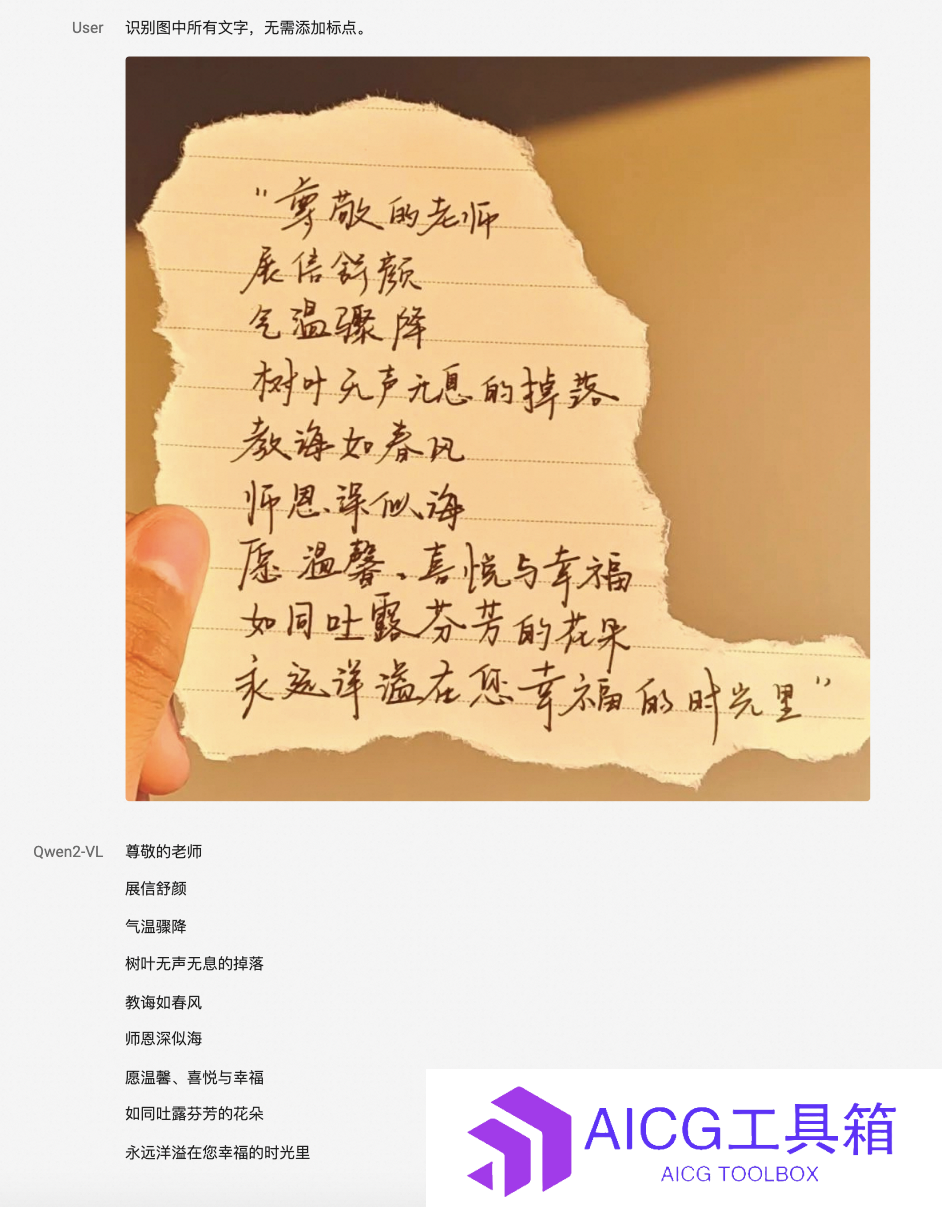 User 识别图中所有文字，无需添加标点。
“尊敬的老师
展信舒颜
气温骤降
树叶无声无息的掉落
教诲如春风
师恩深似海
愿温馨、喜悦与幸福
如同吐露芬芳的花朵
永远洋溢在您幸福的时光里”
Qwen2-VL 尊敬的老师
展信舒颜
气温骤降
树叶无声无息的掉落
教诲如春风
师恩深似海
愿温馨、喜悦与幸福
如同吐露芬芳的花朵
永远洋溢在您幸福的时光里
AICG工具箱
AICG TOOLBOX